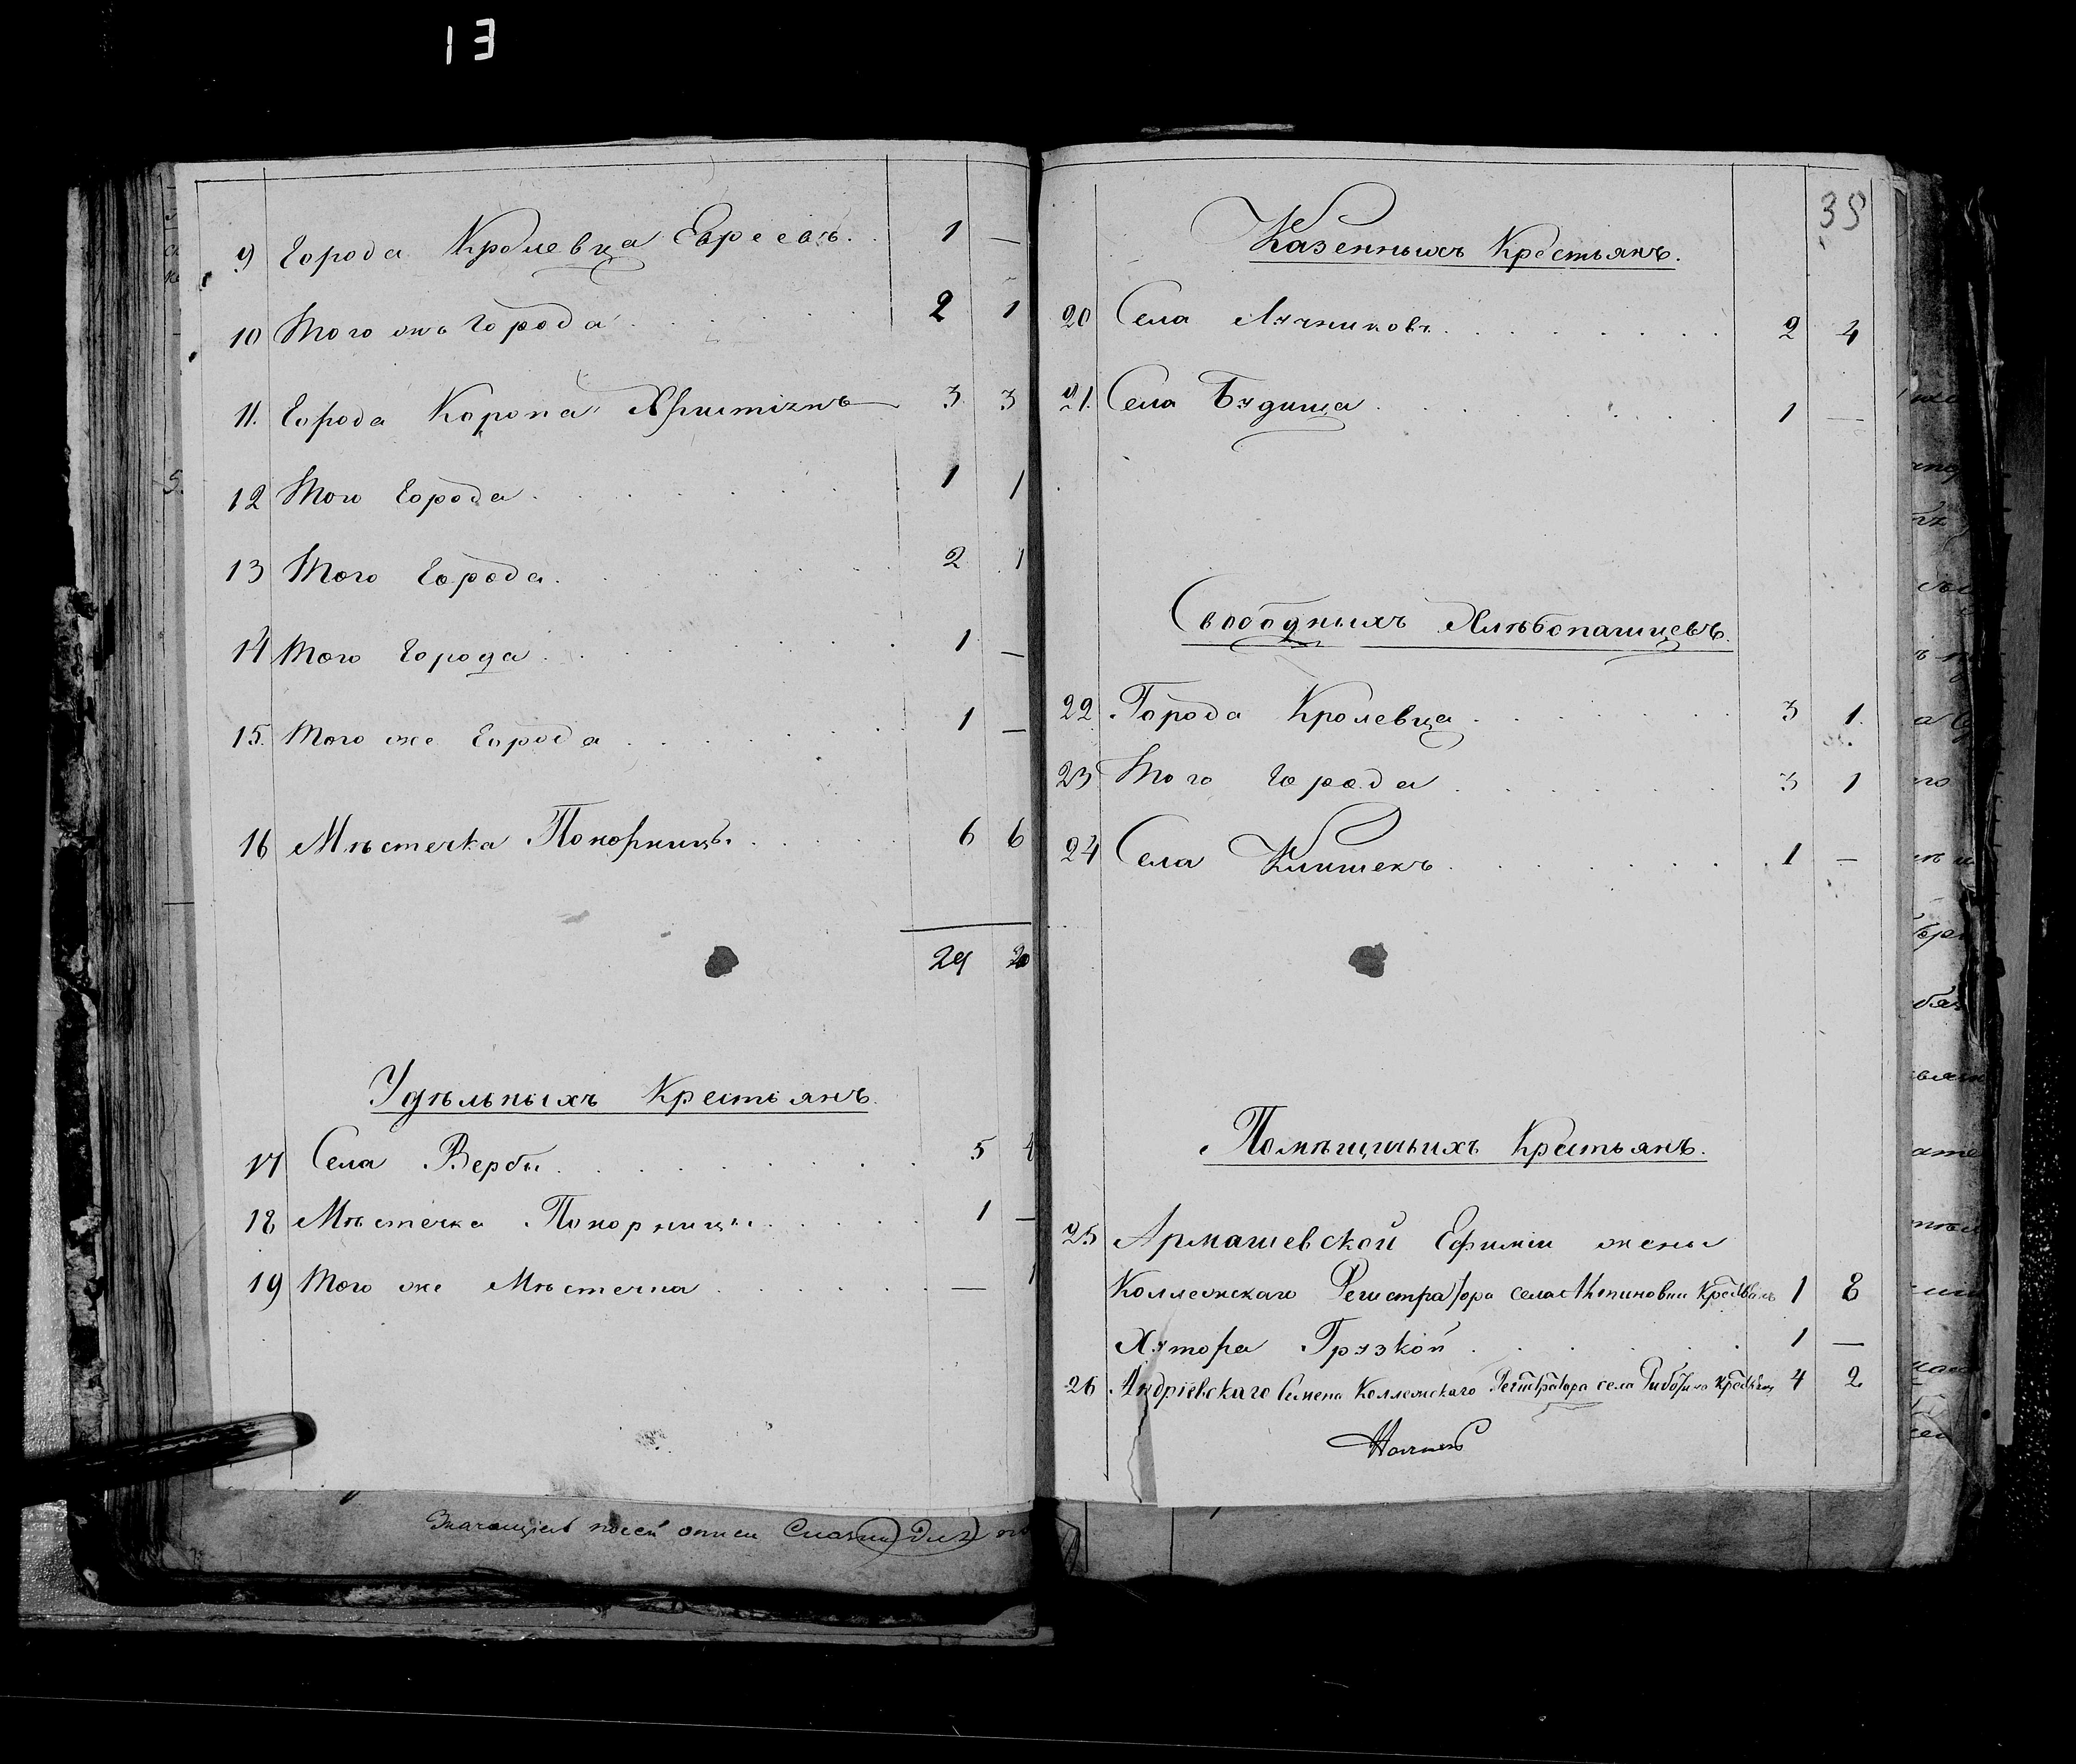 13
9 Города Кролевца Евреевъ. 1 —
10 Того жъ города 2 1
11. Города Коропа Христіянъ 3 3
12 Того Города 1 1
13 Того Города 2 1
14 Того Города 1 —
15. Того же Города 1 —
16 Мѣстечка Понорницъ. 6 6
29 20
Удѣльныхъ Крестьянъ.
17 Села Вербы 5 4
18 Мѣстечка Понорницы 1 —
19 Того же Мѣстечка — 1
Значащіеся по сей описи
35
Казенныхъ Крестьянъ.
20 Села Лучниковъ 2 4
21. Села Будища 1 —
Свободныхъ Хлѣбопашцевъ.
22 Города Кролевца 3 1
23 Того Города 3 1
24 Села Клишекъ 1 —
Помѣщичьихъ Крестьянъ.
25 Армашевской Ефиміи жены
Коллежскаго Регистратора села 1 8
Хутора Грузкой 1 —
26 Андріевскаго Семена Коллежскаго Регистратора села 4 2